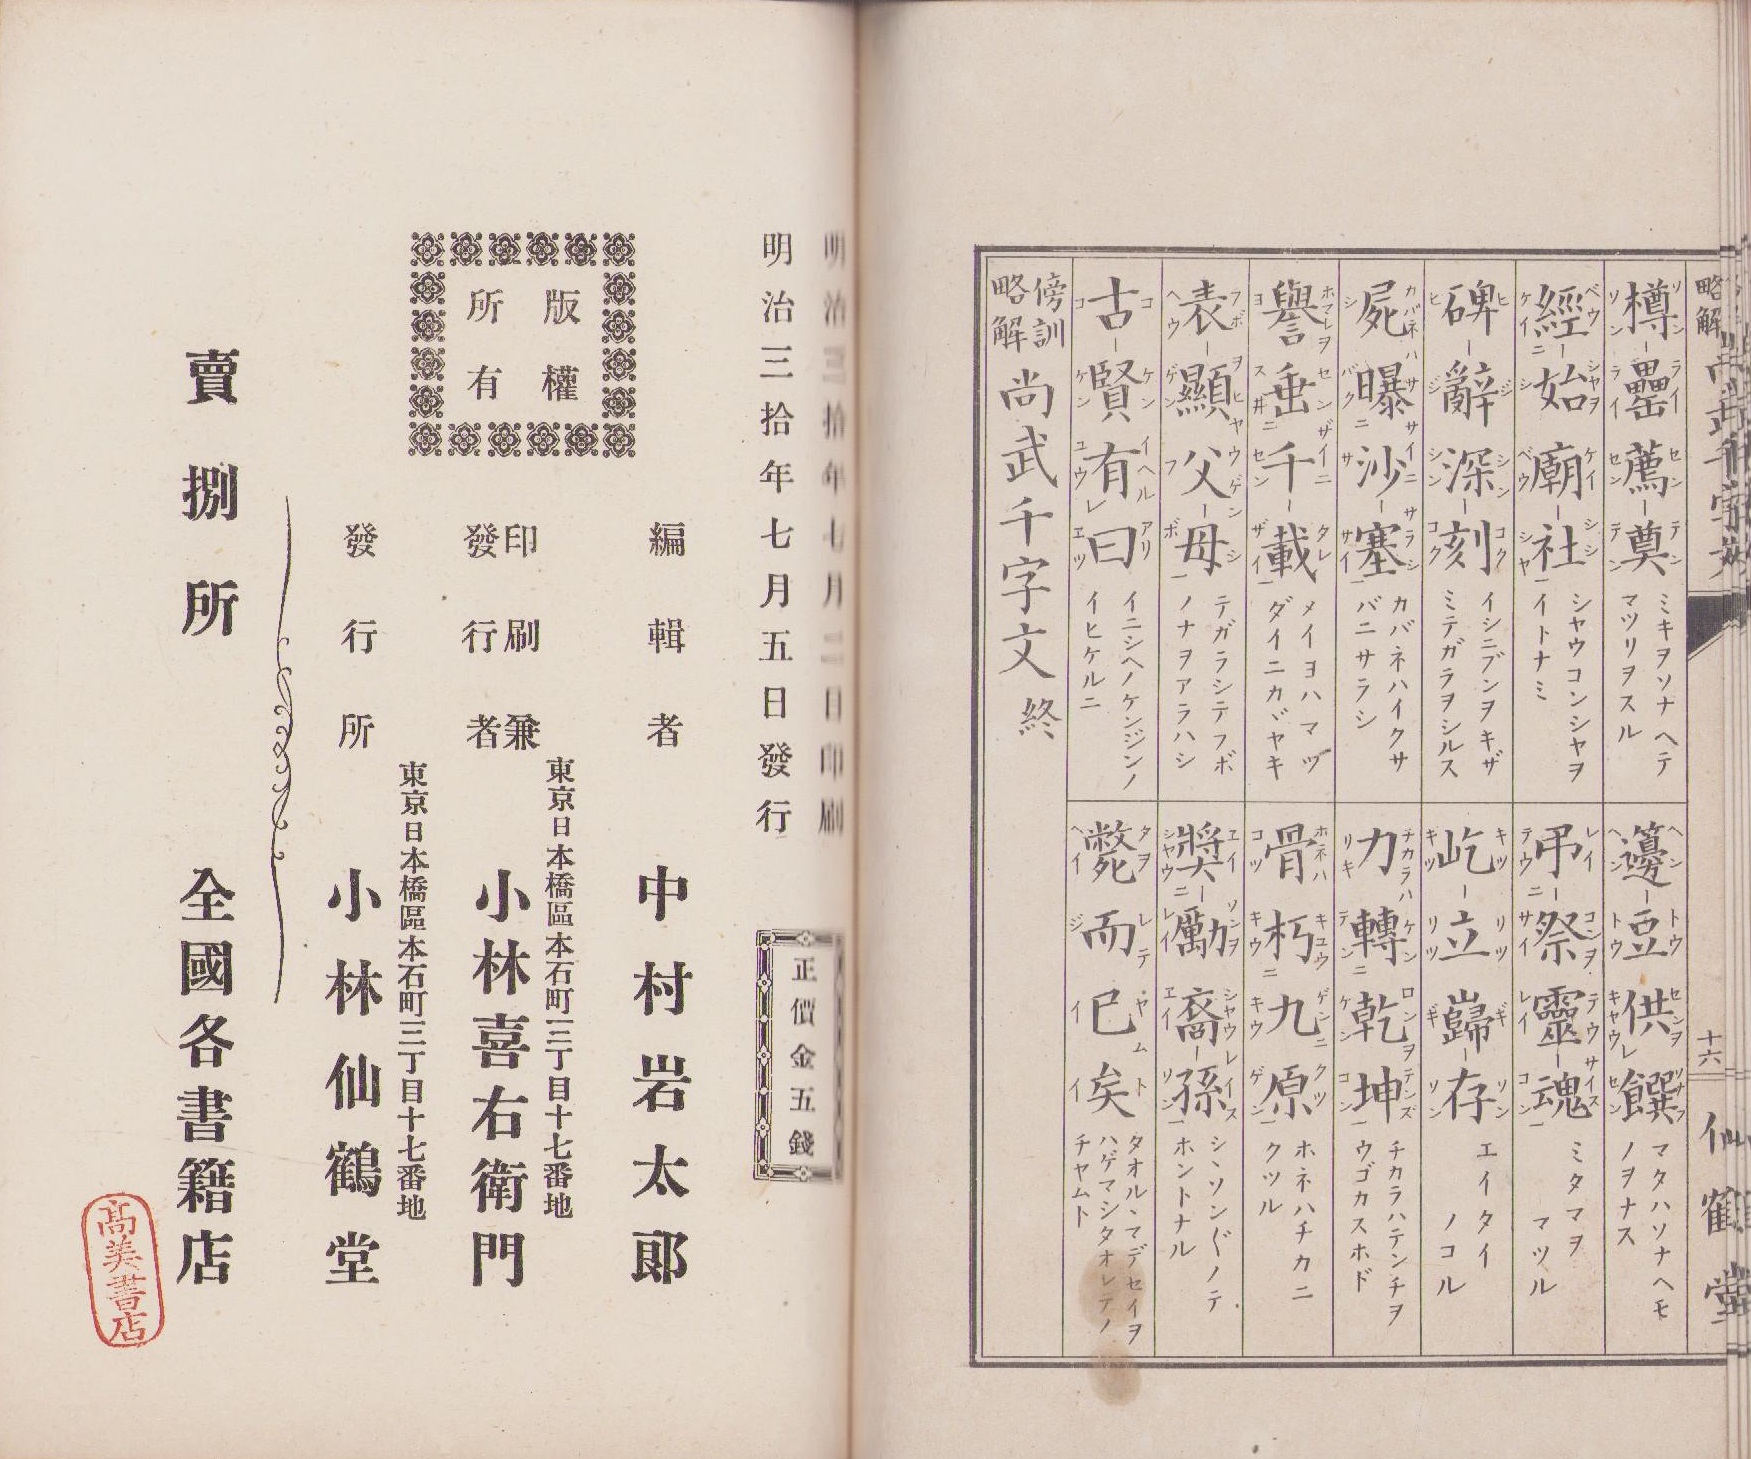 樽罍薦奠
ミキヲソナヘテ
マツリヲスル
籩豆供饌
マタハソナヘモ
ノヲナス
經始廟社
シヤウコンシヤヲ
イトナミ
弔祭靈魂
ミタマヲ
マツル
碑辭深刻
イシニブンヲキザ
ミテガラヲシルス
屹立巋存
エイタイ
ノコル
屍曝沙塞
カバネハイクサ
バニサラシ
力轉乾坤
チカラハテンチヲ
ウゴカスホド
譽垂千載
メイヨハマヅ
ダイニカヾヤキ
骨朽九原
ホネハチカニ
クツル
表顯父母
テガラシテフボ
ノナヲアラハシ
奬勵裔孫
シヽソンノテ
ホントナル
古賢有曰
イニシヘノケンジンノ
イヒケルニ
斃而已矣
タオルヽマデセイヲ
ハゲマシタオレテノ
チヤムト
傍訓
略解
尚武千字文 終
略解
尚武千字文
十六
仙鶴堂
明治三拾年七月二日印刷
明治三拾年七月五日發行
正價金五錢
版權
所有
編輯者 中村岩太郎
東京日本橋區本石町二丁目十七番地
印刷兼
發行者 小林喜右衛門
東京日本橋區本石町二丁目十七番地
發行所 小林仙鶴堂
賣捌所 全國各書籍店
高美書店